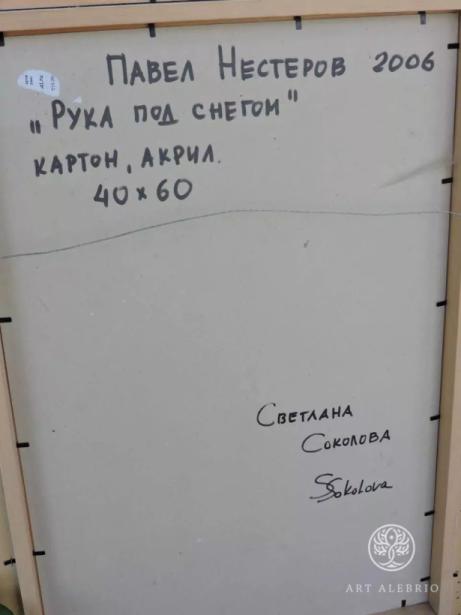 Павел Нестеров 2006
„Рука под снегом"
картон, акрил.
40 x 60
Светлана
Соколова
SSokolova
ART ALEBRIO